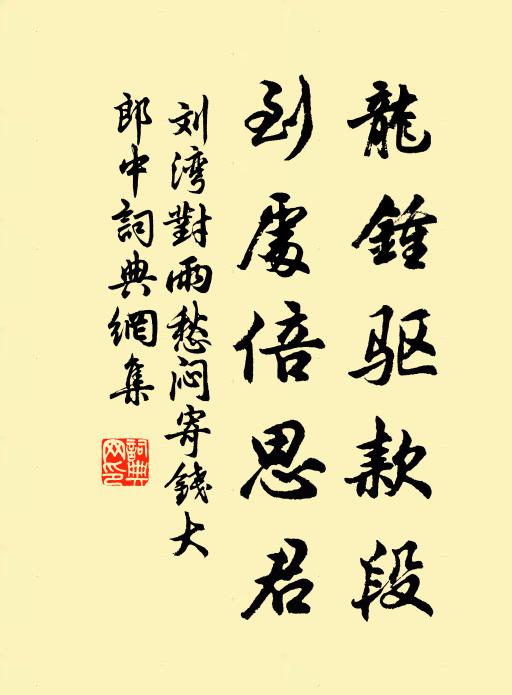 龍鍾驱款段
到處倍思君
刘湾對雨愁闷寄錢大
郎中詞典網集
詞典
网印